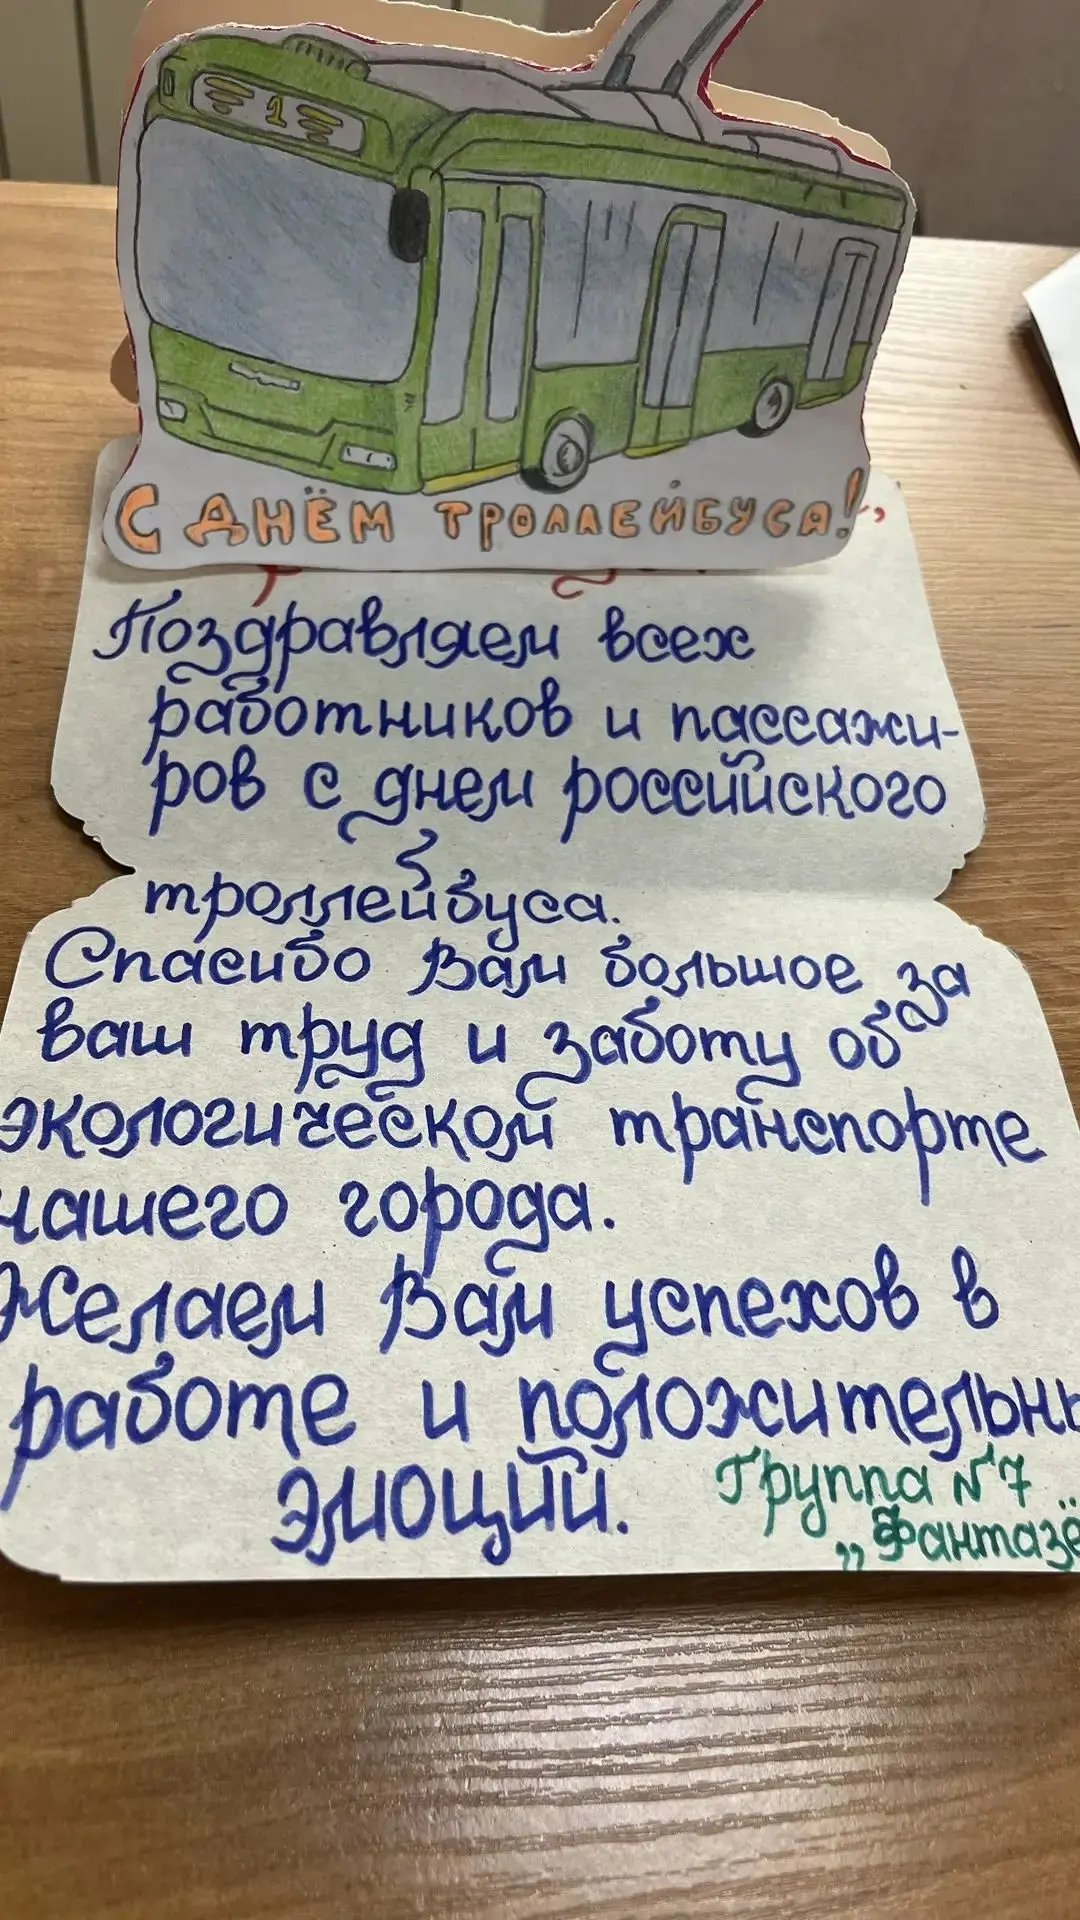 1
С ДНЁМ ТРОЛЛЕЙБУСА!
Поздравляем всех
работников и пассажи-
ров с днем российского
троллейбуса.
Спасибо Вам большое за
ваш труд и заботу об
экологической транспорте
нашего города.
Желаем Вам успехов в
работе и положительны
эмоций.
Группа №7
„Фантазё